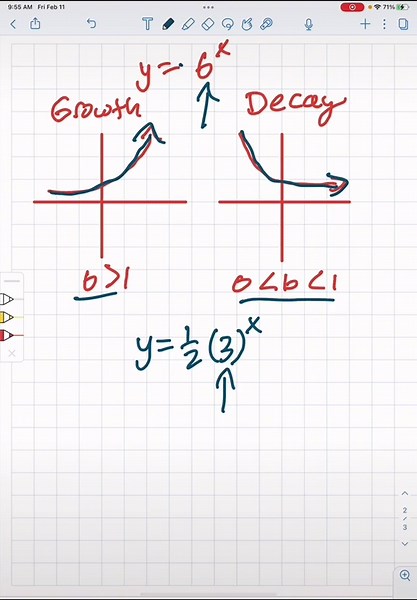 9:55 AM Fri Feb 11
71%
T
y = 6^x
Growth
Decay
b > 1
0 < b < 1
y = 1/2 (3)^x
2
/
3